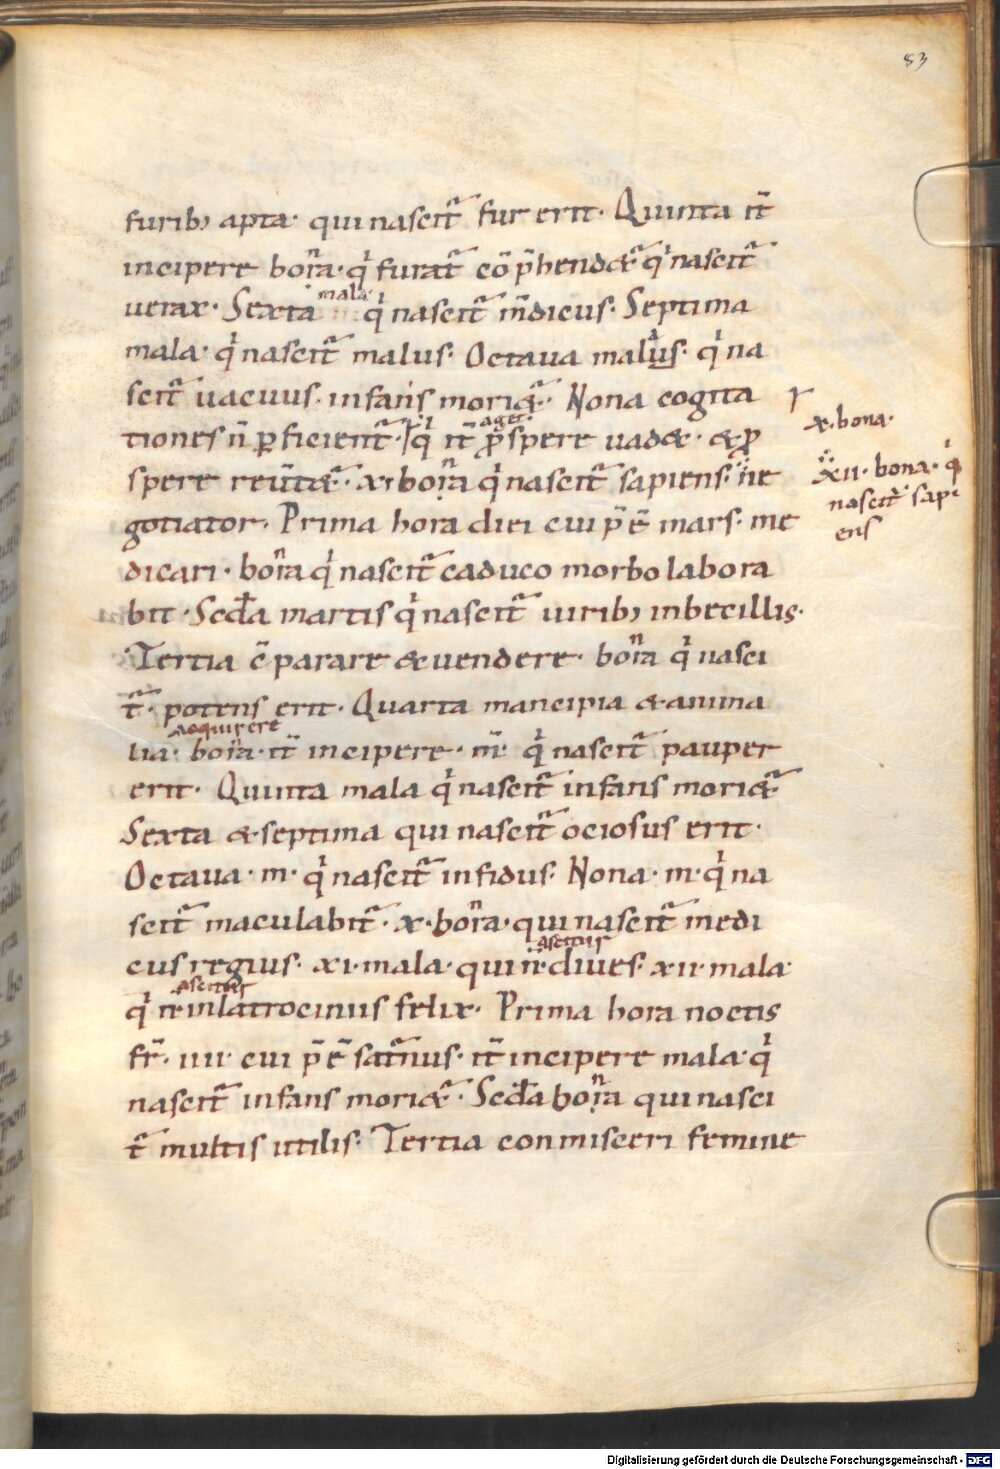 83
furib; apta· qui nascit̃ fur erit· Quinta it̃
incipere bor̃a· qͥ furat̃ cõp̃hendæ̃ qͥ nascit̃
uerax· Sexta mala· qͥ nascit̃ m̃dicus· Septima
mala· qͥ nascit̃ malus· Octaua malus· qͥ na
scit̃ uacuus· infans moriæ̃· Nona cogita
tiones n̄ ꝑficient̃· qͥ it̃ aget· ꝓspere uadæ· &ꝓ
spere reũtæ̃· xi bor̃a qͥ nascit̃ sapiens· ne
gotiator· Prima hora diei cui p̄ē mars· me
dicari· bor̃a qͥ nascit̃ caduco morbo labora
bit· Scđa martis qͥ nascit̃ uirib; inbecillis·
Tertia ē parare & uendere· bor̃a qͥ nasci
t̃· potens erit· Quarta mancipia & anima
lia· adquirere bor̃a· it̃ incipere· m̃· qͥ nascit̃ pauper
erit· Quinta mala qͥ nascit̃ infans moriæ̃
Sexta & septima qui nascit̃ ociosus erit·
Octaua· m· qͥ nascit̃ infidus· Nona· m· qͥ na
scit̃ maculabit̃· x· bor̃a· qui nascit̃ medi
cus regius· xi· mala· qui n· ascitus diues· xii· mala·
qͥ n· ascitur in latrociniis felix· Prima hora noctis
fr̃· iiii· cui p̄ē sat̃nus· it̃ incipere mala· qͥ
nascit̃ infans moriæ̃· Scđa bor̃a qui nasci
t̃ multis utilis· Tertia conmisceri femine
r
x· bona·
xii· bona· qͥ
nascit̃ sapi
ens
Digitalisierung gefördert durch die Deutsche Forschungsgemeinschaft - DFG